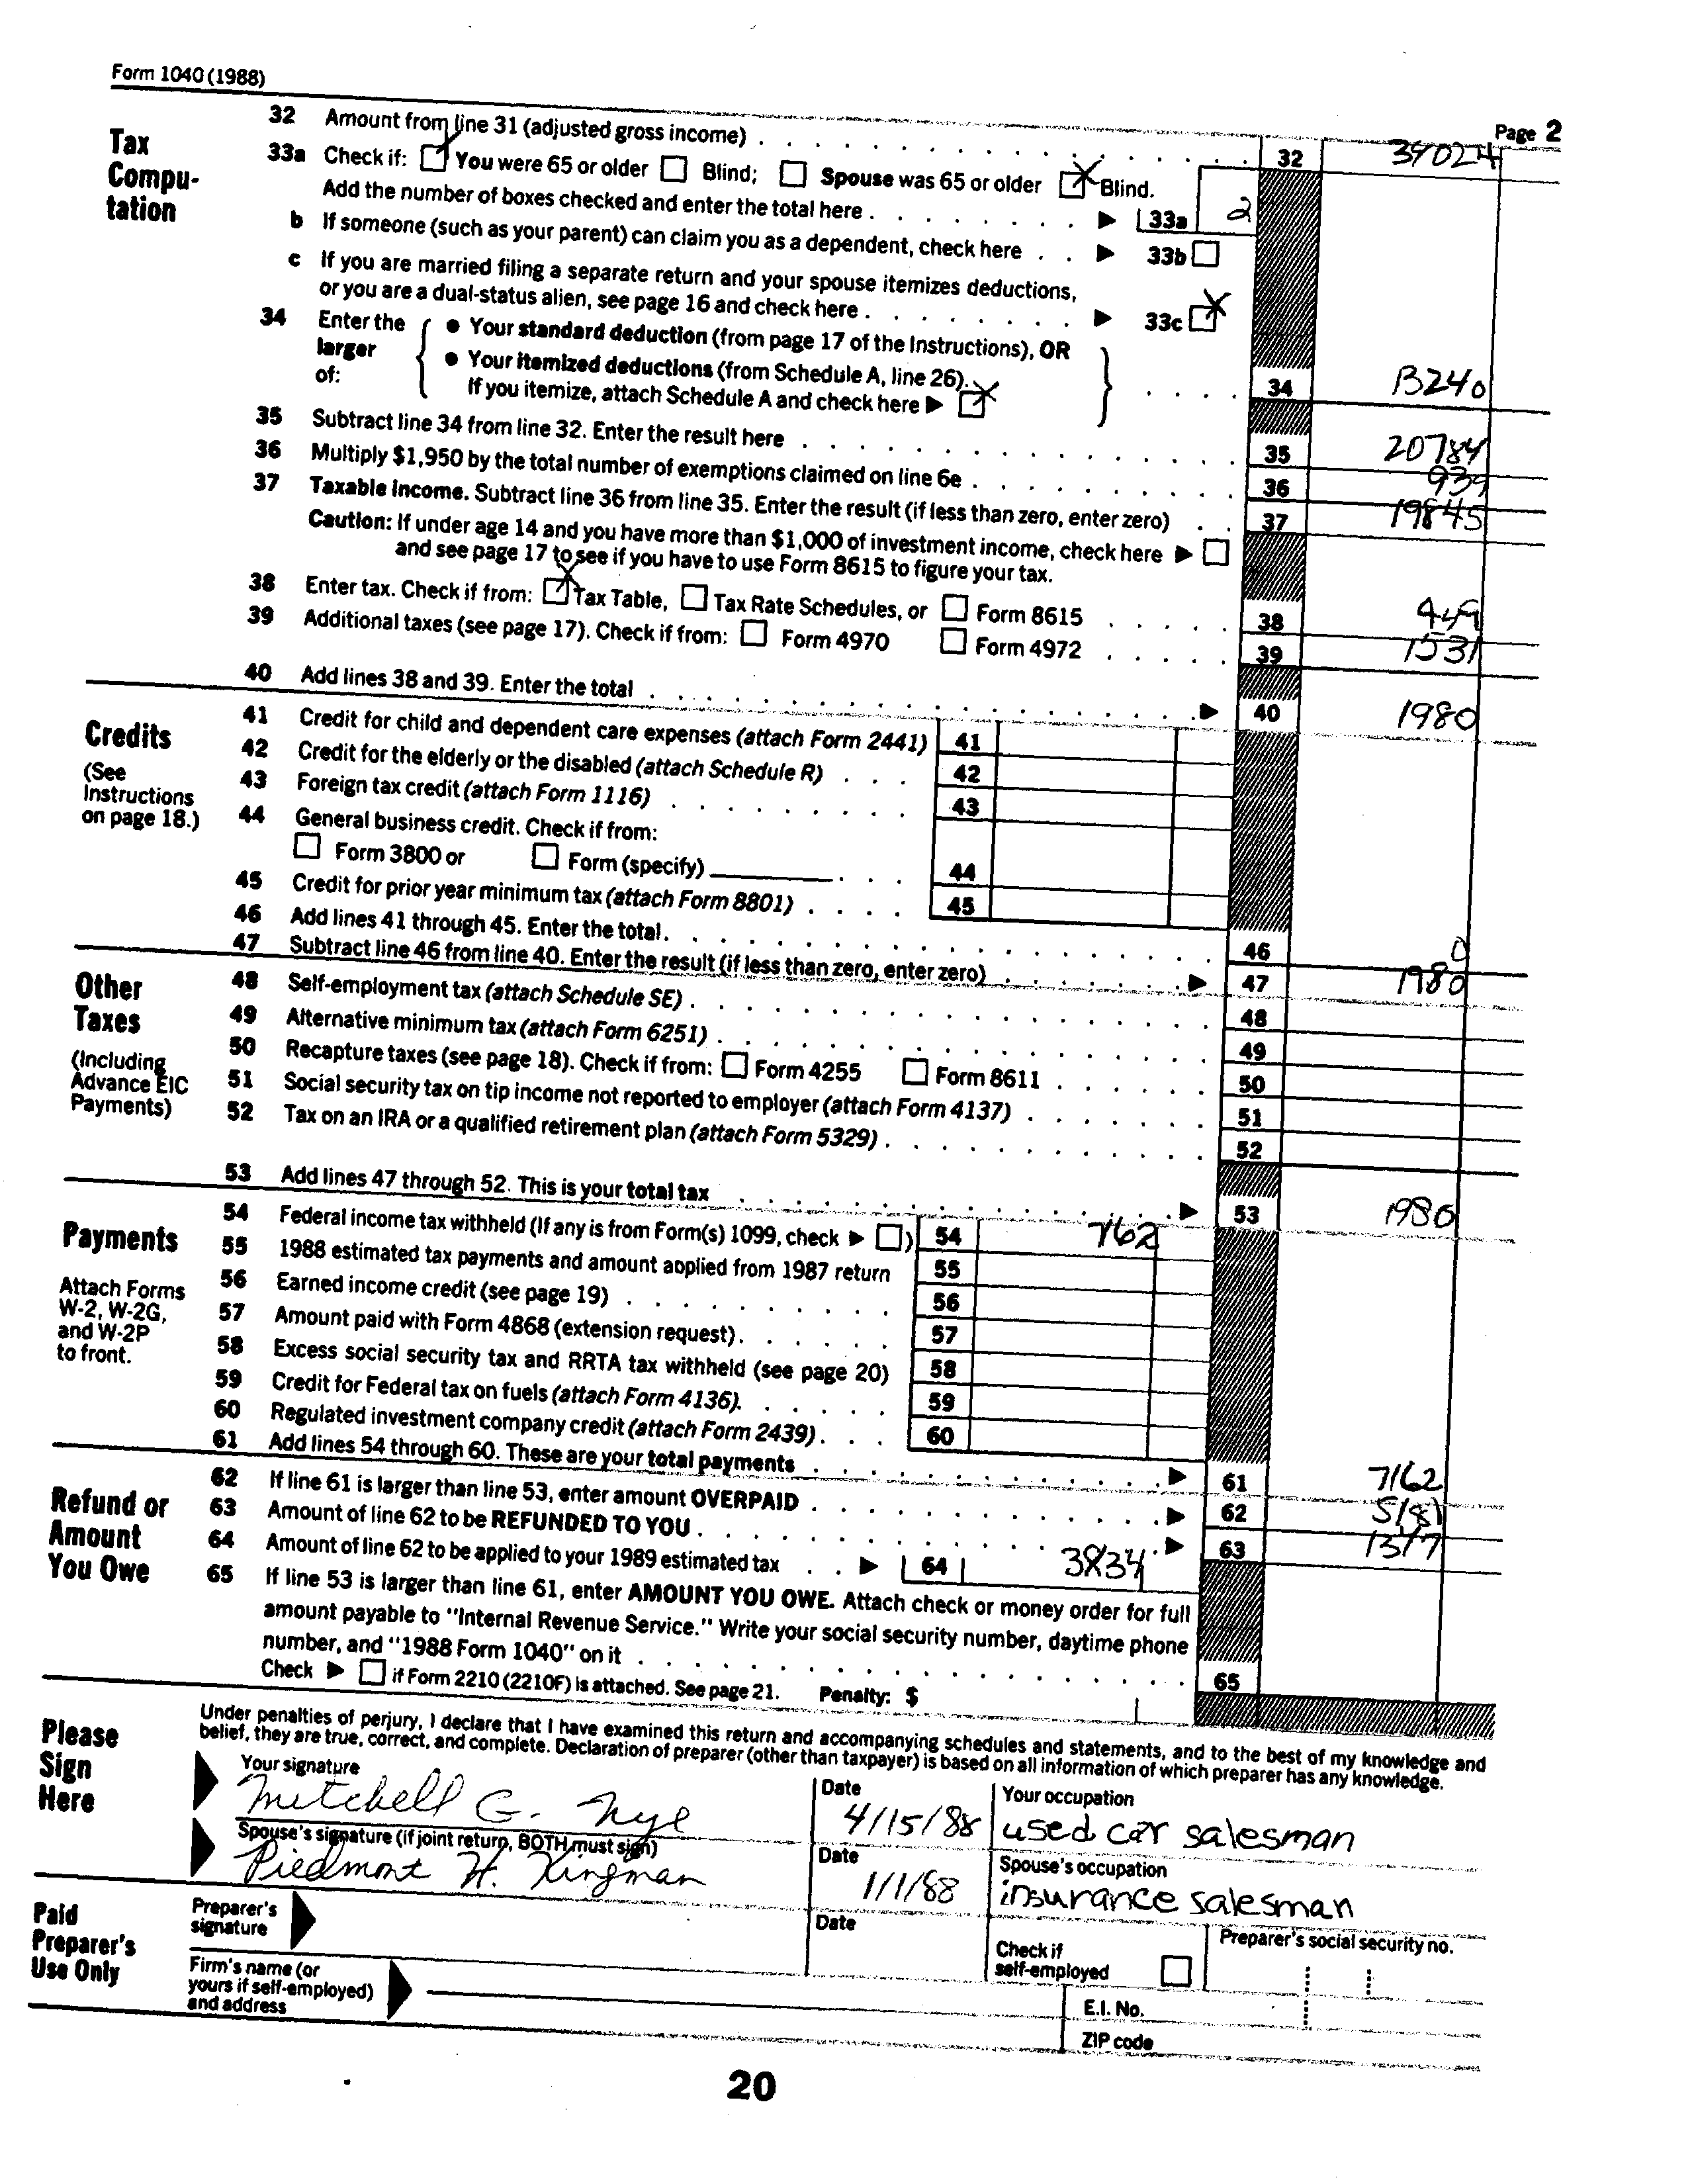 Form 1040 (1988)
Page 2
Tax Compu-tation
32 Amount from line 31 (adjusted gross income) 32 34024
33a Check if: You were 65 or older Blind; Spouse was 65 or older Blind.
Add the number of boxes checked and enter the total here 33a 2
b If someone (such as your parent) can claim you as a dependent, check here 33b
c If you are married filing a separate return and your spouse itemizes deductions,
or you are a dual-status alien, see page 16 and check here 33c X
34 Enter the larger of: • Your standard deduction (from page 17 of the Instructions), OR
• Your itemized deductions (from Schedule A, line 26).
If you itemize, attach Schedule A and check here X 34 13240
35 Subtract line 34 from line 32. Enter the result here 35 20784
36 Multiply $1,950 by the total number of exemptions claimed on line 6e 36 939
37 Taxable Income. Subtract line 36 from line 35. Enter the result (if less than zero, enter zero) 37 19845
Caution: If under age 14 and you have more than $1,000 of investment income, check here
and see page 17 to see if you have to use Form 8615 to figure your tax.
38 Enter tax. Check if from: X Tax Table, Tax Rate Schedules, or Form 8615 38 449
39 Additional taxes (see page 17). Check if from: Form 4970 Form 4972 39 1531
40 Add lines 38 and 39. Enter the total 40 1980
Credits
(See Instructions on page 18.)
41 Credit for child and dependent care expenses (attach Form 2441) 41
42 Credit for the elderly or the disabled (attach Schedule R) 42
43 Foreign tax credit (attach Form 1116) 43
44 General business credit. Check if from:
Form 3800 or Form (specify) 44
45 Credit for prior year minimum tax (attach Form 8801) 45
46 Add lines 41 through 45. Enter the total 46 0
47 Subtract line 46 from line 40. Enter the result (if less than zero, enter zero) 47 1980
Other Taxes
(Including Advance EIC Payments)
48 Self-employment tax (attach Schedule SE) 48
49 Alternative minimum tax (attach Form 6251) 49
50 Recapture taxes (see page 18). Check if from: Form 4255 Form 8611 50
51 Social security tax on tip income not reported to employer (attach Form 4137) 51
52 Tax on an IRA or a qualified retirement plan (attach Form 5329) 52
53 Add lines 47 through 52. This is your total tax 53 1980
Payments
Attach Forms W-2, W-2G, and W-2P to front.
54 Federal income tax withheld (If any is from Form(s) 1099, check ) 54 762
55 1988 estimated tax payments and amount applied from 1987 return 55
56 Earned income credit (see page 19) 56
57 Amount paid with Form 4868 (extension request) 57
58 Excess social security tax and RRTA tax withheld (see page 20) 58
59 Credit for Federal tax on fuels (attach Form 4136) 59
60 Regulated investment company credit (attach Form 2439) 60
61 Add lines 54 through 60. These are your total payments 61 7162
Refund or Amount You Owe
62 If line 61 is larger than line 53, enter amount OVERPAID 62 5181
63 Amount of line 62 to be REFUNDED TO YOU 63 1317
64 Amount of line 62 to be applied to your 1989 estimated tax 64 3834
65 If line 53 is larger than line 61, enter AMOUNT YOU OWE. Attach check or money order for full
amount payable to "Internal Revenue Service." Write your social security number, daytime phone
number, and "1988 Form 1040" on it 65
Check if Form 2210 (2210F) is attached. See page 21. Penalty: $
Please Sign Here
Under penalties of perjury, I declare that I have examined this return and accompanying schedules and statements, and to the best of my knowledge and
belief, they are true, correct, and complete. Declaration of preparer (other than taxpayer) is based on all information of which preparer has any knowledge.
Your signature Date Your occupation
Mitchell G. Nye 4/15/88 used car salesman
Spouse's signature (if joint return, BOTH must sign) Date Spouse's occupation
Piedmont H. Kingman 1/1/88 insurance salesman
Paid Preparer's Use Only
Preparer's signature Date Check if self-employed Preparer's social security no.
Firm's name (or yours if self-employed) and address
E.I. No.
ZIP code
20